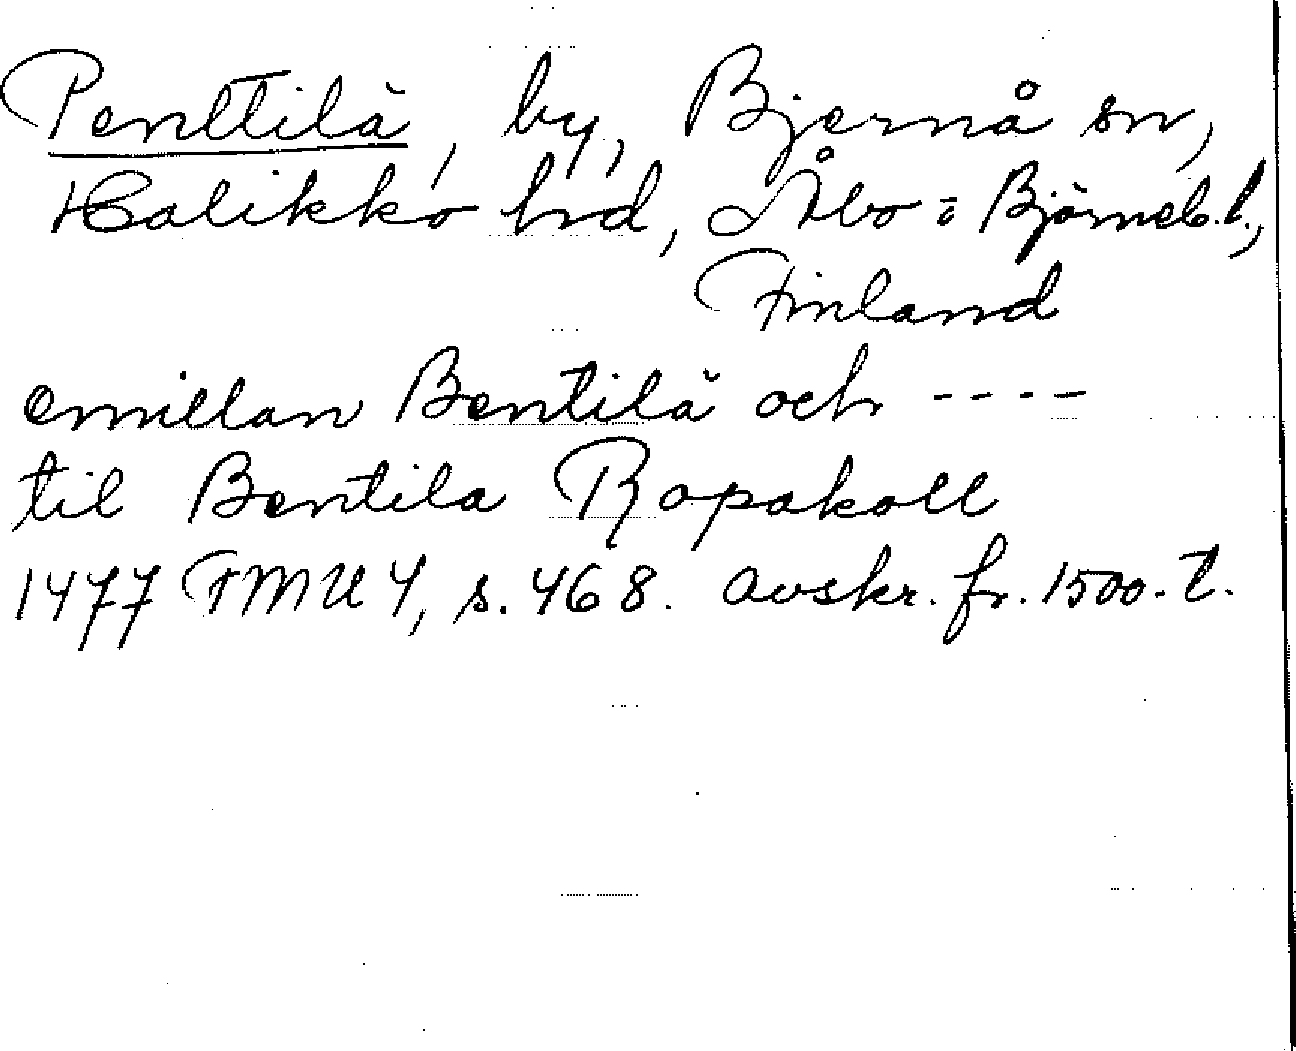 Penttilä, by, Bjernå sn,
Halikko hd, Åbo o Björneb. l.,
Finland
emillan Bentilä och ----
til Bentila Ropakall
1477 FMU 4, s. 468. avskr. fr. 1500-t.